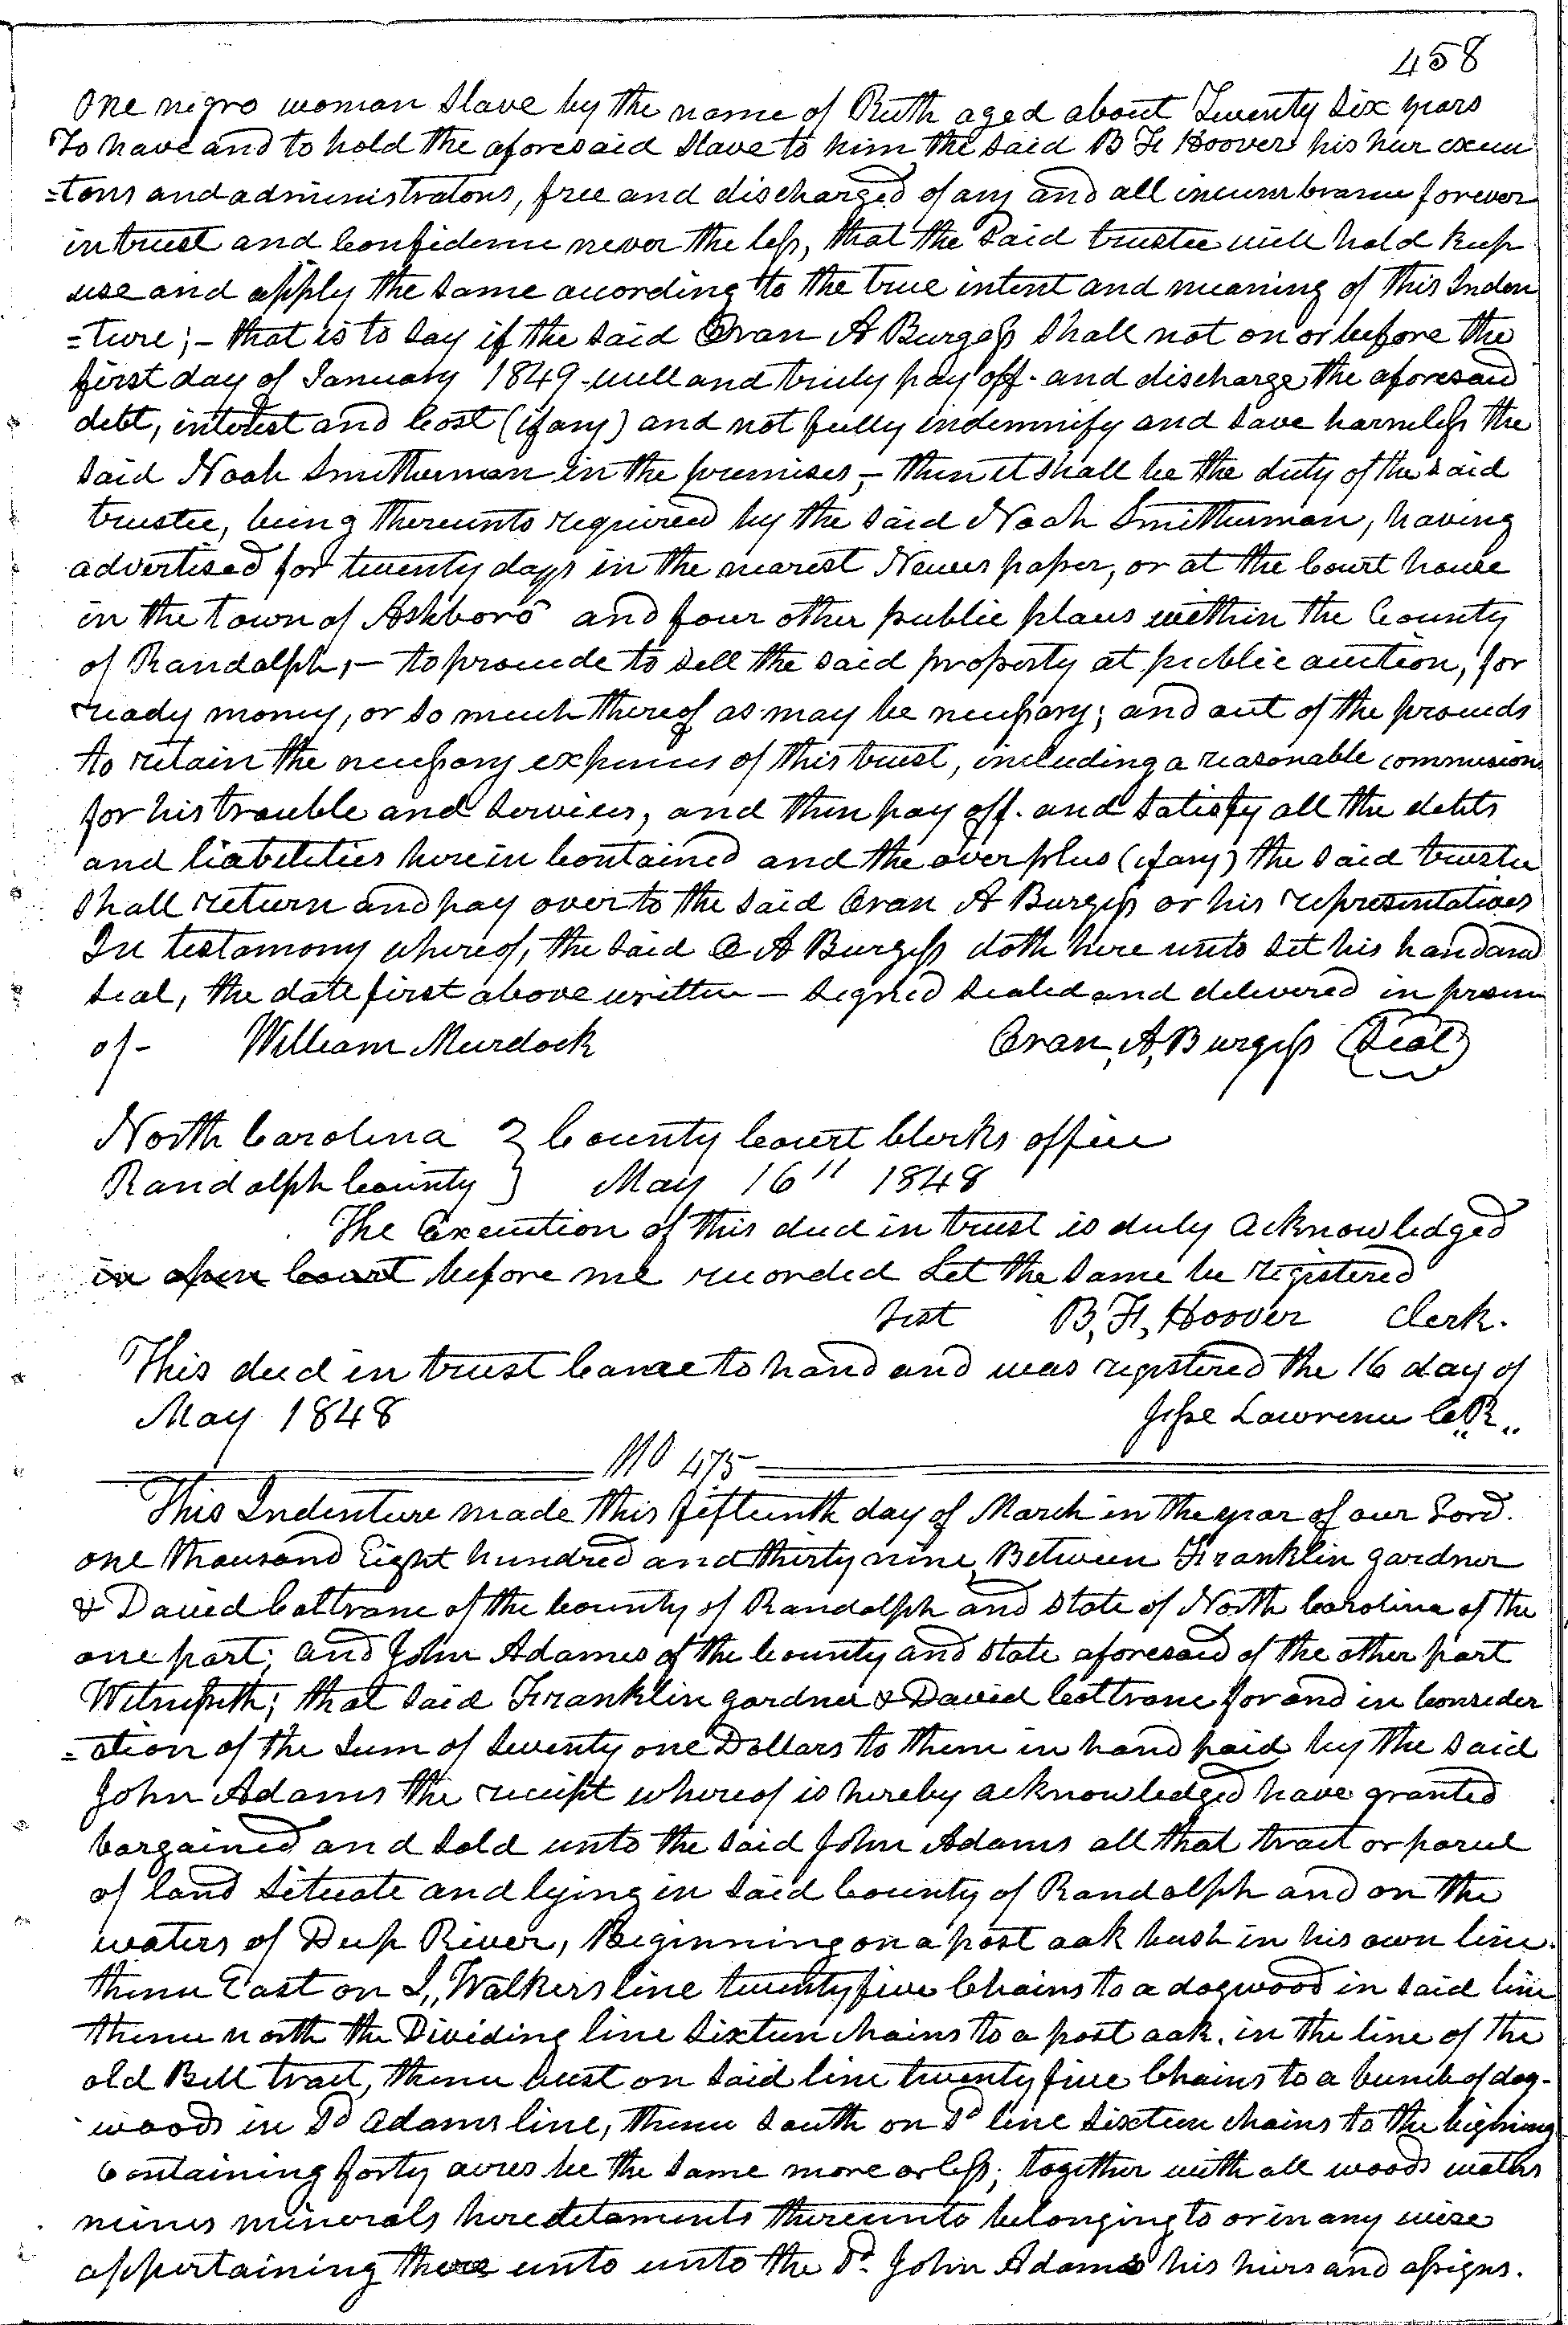 458
One negro woman Slave by the name of Ruth aged about Twenty Six years
To have and to hold the aforesaid Slave to him the said B F Hoover his heir execu
=tors and administrators, free and discharged of any and all incumbrance forever
in trust and Confidence never the less, that the said trustee will hold keep
use and apply the same according to the true intent and meaning of this Inden
=ture; - that is to say if the said Oran A Burgess shall not on or before the
first day of January 1849 well and truly pay off. and discharge the aforesaid
debt, interest and Cost (if any) and not fully indemnify and save harmless the
said Noah Smitherman in the premises, - then it shall be the duty of the said
trustee, being thereunto required by the said Noah Smitherman, having
advertised for twenty days in the nearest News paper, or at the Court house
in the town of Ashboro and four other public places within the County
of Randolph, - to proceede to sell the said property at public auction, for
ready money, or so much thereof as may be necessary; and out of the proceeds
to retain the necessary expences of this trust, including a reasonable commission
for his trouble and services, and then pay off. and satisfy all the debts
and liabilities herein Contained and the overplus (if any) the said trustee
shall return and pay over to the said Oran A Burgess or his representatives
In testamony whereof, the said O A Burgess doth here unto set his hand and
seal, the date first above written - signed sealed and delivered in presence
of - William Murdock Oran, A, Burgess (Seal)
North Carolina } County Court Clerks office
Randolph County } May 16" 1848
The Execution of this deed in trust is duly acknowledged
in open Court before me recorded Let the same be registered
Test B, F, Hoover Clerk.
This deed in trust Came to hand and was registered the 16 day of
May 1848 Jesse Lawrence C.R.,,
No 475
This Indenture made this fifteenth day of March in the year of our Lord.
one thousand Eight hundred and thirty nine, Between Franklin gardner
& David Coltrane of the County of Randolph and State of North Carolina of the
one part; and John Adams of the County and State aforesaid of the other part
Witnesseth; that said Franklin gardner & David Coltrane for and in Consider
=ation of the Sum of Seventy one Dollars to them in hand paid by the said
John Adams the receipt whereof is hereby acknowledged have granted
bargained and sold unto the said John Adams all that tract or parcel
of land situate and lying in said County of Randolph and on the
waters of Deep River, Beginning on a post oak bush in his own line.
thence East on I,, Walkers line twenty five Chains to a dogwood in said line
thence north the Dividing line sixteen chains to a post oak. in the line of the
old Bell tract, thence west on said line twenty five Chains to a bunch of dog-
woods in Sd Adams line, thence South on Sd line sixteen chains to the bigining
Containing forty acres be the same more or less; together with all woods waters
mines minerals heredetaments thereunto belonging to or in any wise
appertaining there unto unto the Sd. John Adams his hiers and assigns.